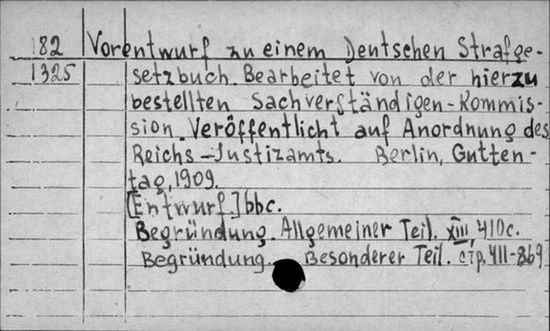 182 Vorentwurf zu einem Deutschen Strafge-
1325 setzbuch. Bearbeitet von der hierzu
bestellten Sachverständigen-Kommis-
sion. Veröffentlicht auf Anordnung des
Reichs-Justizamts. Berlin, Gutten-
tag, 1909.
[Entwurf.] bbc.
Begründung. Allgemeiner Teil. XIII, 410c.
Begründung. Besonderer Teil. стр. 411-869